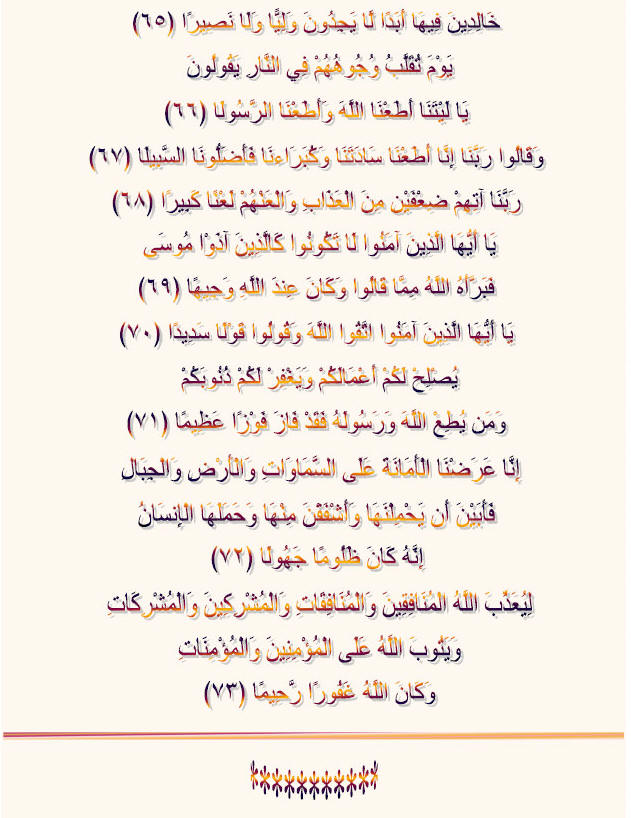 خَالِدِينَ فِيهَا أَبَدًا لَّا يَجِدُونَ وَلِيًّا وَلَا نَصِيرًا (٦٥)
يَوْمَ تُقَلَّبُ وُجُوهُهُمْ فِي النَّارِ يَقُولُونَ
يَا لَيْتَنَا أَطَعْنَا اللَّهَ وَأَطَعْنَا الرَّسُولَا (٦٦)
وَقَالُوا رَبَّنَا إِنَّا أَطَعْنَا سَادَتَنَا وَكُبَرَاءنَا فَأَضَلُّونَا السَّبِيلَا (٦٧)
رَبَّنَا آتِهِمْ ضِعْفَيْنِ مِنَ الْعَذَابِ وَالْعَنْهُمْ لَعْنًا كَبِيرًا (٦٨)
يَا أَيُّهَا الَّذِينَ آمَنُوا لَا تَكُونُوا كَالَّذِينَ آذَوْا مُوسَى
فَبَرَّأَهُ اللَّهُ مِمَّا قَالُوا وَكَانَ عِندَ اللَّهِ وَجِيهًا (٦٩)
يَا أَيُّهَا الَّذِينَ آمَنُوا اتَّقُوا اللَّهَ وَقُولُوا قَوْلًا سَدِيدًا (٧٠)
يُصْلِحْ لَكُمْ أَعْمَالَكُمْ وَيَغْفِرْ لَكُمْ ذُنُوبَكُمْ
وَمَن يُطِعْ اللَّهَ وَرَسُولَهُ فَقَدْ فَازَ فَوْزًا عَظِيمًا (٧١)
إِنَّا عَرَضْنَا الْأَمَانَةَ عَلَى السَّمَاوَاتِ وَالْأَرْضِ وَالْجِبَالِ
فَأَبَيْنَ أَن يَحْمِلْنَهَا وَأَشْفَقْنَ مِنْهَا وَحَمَلَهَا الْإِنسَانُ
إِنَّهُ كَانَ ظَلُومًا جَهُولًا (٧٢)
لِيُعَذِّبَ اللَّهُ الْمُنَافِقِينَ وَالْمُنَافِقَاتِ وَالْمُشْرِكِينَ وَالْمُشْرِكَاتِ
وَيَتُوبَ اللَّهُ عَلَى الْمُؤْمِنِينَ وَالْمُؤْمِنَاتِ
وَكَانَ اللَّهُ غَفُورًا رَّحِيمًا (٧٣)